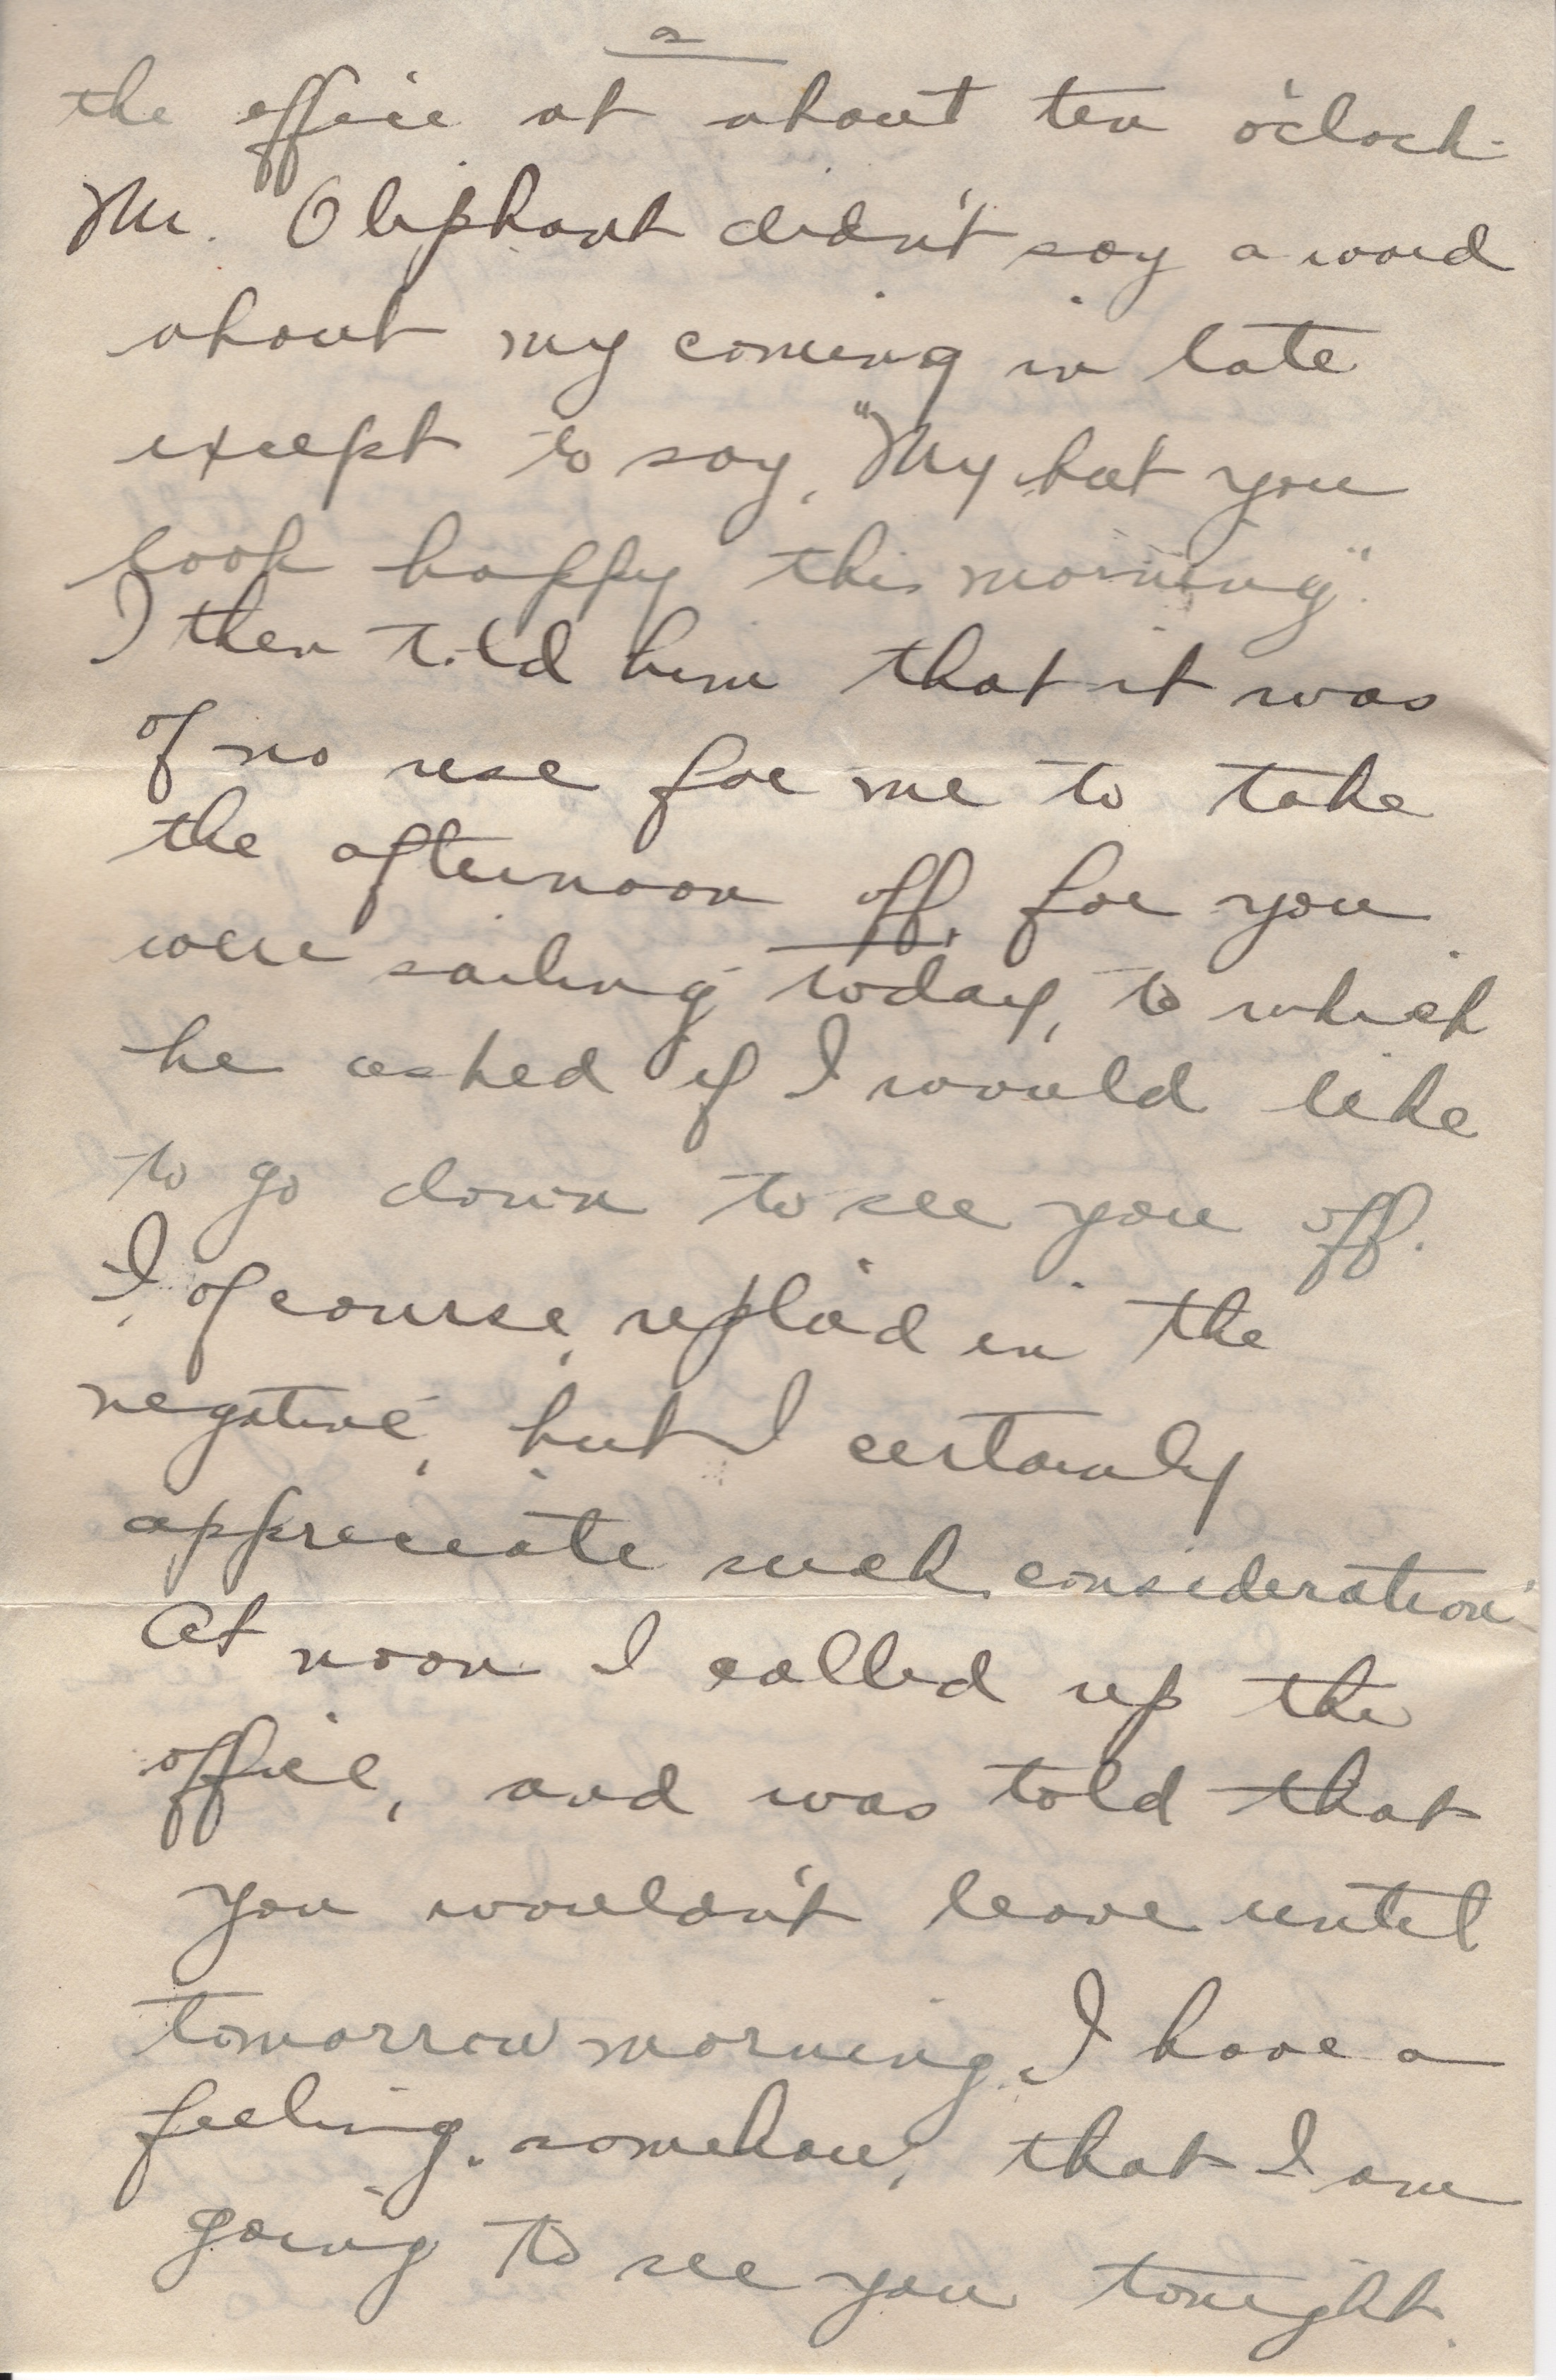 2
the office at about ten o'clock.
Mr. Oliphant didn't say a word
about my coming in late
except to say, "My but you
look happy this morning".
I then told him that it was
of no use for me to take
the afternoon off, for you
were sailing today, to which
he asked if I would like
to go down to see you off.
I, of course, replied in the
negative, but I certainly
appreciate such consideration.
At noon I called up the
office, and was told that
you wouldn't leave until
tomorrow morning. I have a
feeling, somehow, that I am
going to see you tonight.